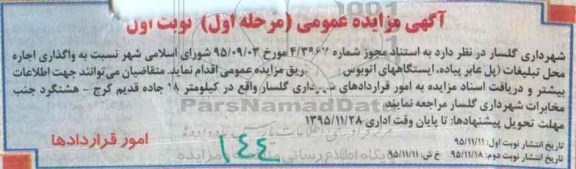 آگهی مزایده عمومی (مرحله اول) نوبت اول
شهرداری گلسار در نظر دارد به استناد مجوز شماره ۴/۳۹۶۷ مورخ ۹۵/۰۹/۰۳ شورای اسلامی شهر نسبت به واگذاری اجاره
محل تبلیغات (پل عابر پیاده، ایستگاههای اتوبوس ریق مزایده عمومی اقدام نماید. متقاضیان می توانند جهت اطلاعات
بیشتر و دریافت اسناد مزایده به امور قراردادهای شهرداری گلسار واقع در کیلومتر ۱۸ جاده قدیم کرج - هشتگرد جنب
مخابرات شهرداری گلسار مراجعه نمایند.
مهلت تحویل پیشنهادها: تا پایان وقت اداری ۱۳۹۵/۱۱/۲۸
تاریخ انتشار نوبت اول: ۹۵/۱۱/۱۱
تاریخ انتشار نوبت دوم: ۹۵/۱۱/۱۸ خ ش: ۹۵/۱۱/۱۱
امور قراردادها
۱۴۴
ParsNamadData